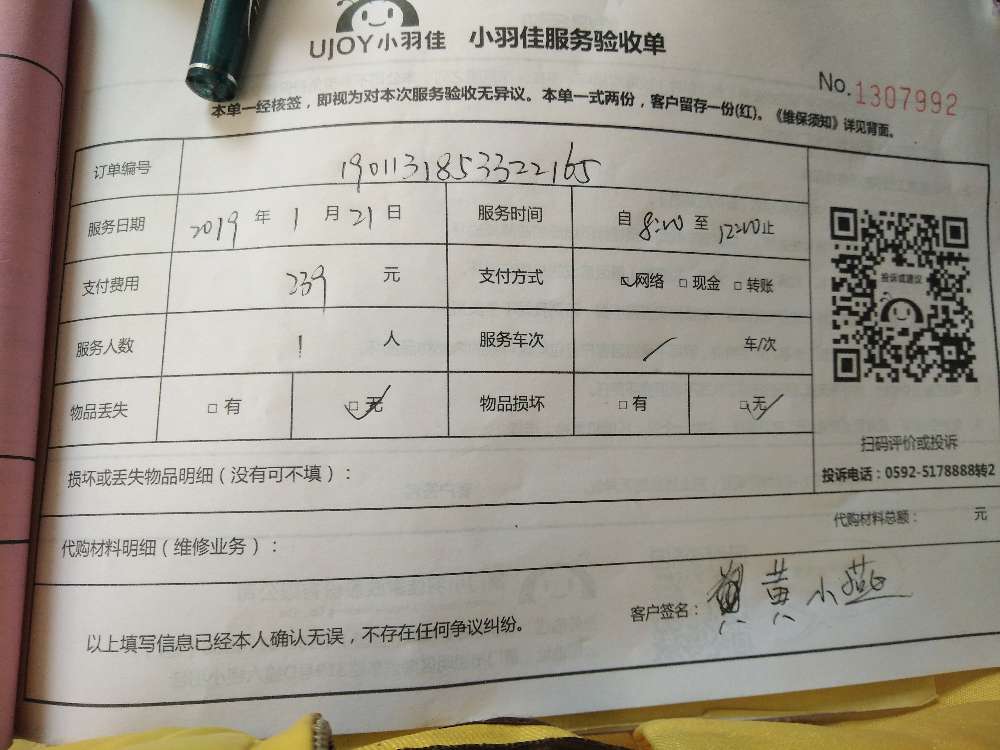 UJOY小羽佳 小羽佳服务验收单
No.1307992
本单一经核签，即视为对本次服务验收无异议。本单一式两份，客户留存一份(红)。《维保须知》详见背面。
订单编号 1901131853322165
服务日期 2019 年 1 月 21 日 服务时间 自 8:00 至 12:00止
支付费用 239 元 支付方式 网络 现金 转账
服务人数 1 人 服务车次 / 车/次
物品丢失 有 无 物品损坏 有 无
投诉或建议
扫码评价或投诉
投诉电话：0592-5178888转2
损坏或丢失物品明细（没有可不填）：
代购材料明细（维修业务）：
代购材料总额： 元
以上填写信息已经本人确认无误，不存在任何争议纠纷。
客户签名： 黄小燕